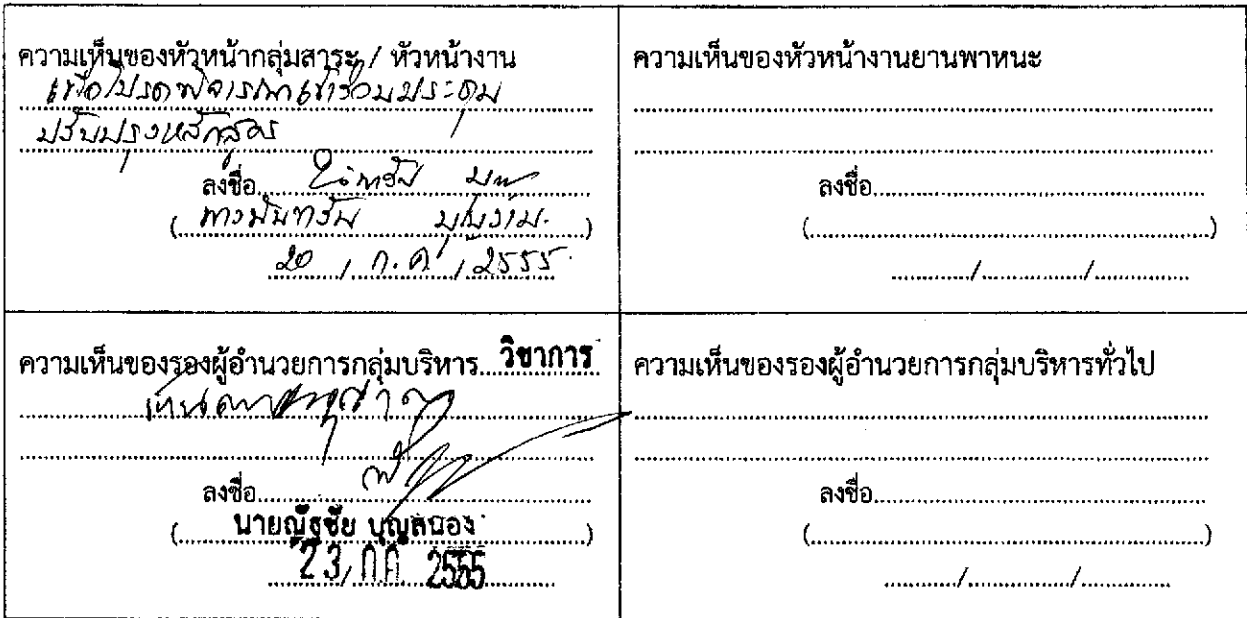 ความเห็นของหัวหน้ากลุ่มสาระ / หัวหน้างาน
เพื่อโปรดพิจารณาเข้าร่วมประชุม
ปรับปรุงหลักสูตร
ลงชื่อ
(
บุญงาม.)
20 / ก.ค. / 2555
ความเห็นของหัวหน้างานยานพาหนะ
ลงชื่อ
( )
/ /
ความเห็นของรองผู้อำนวยการกลุ่มบริหาร วิชาการ
เห็นควรอนุญาต
ลงชื่อ
( นายณัฐชัย บุญสนอง )
23 / ก.ค. 2555
ความเห็นของรองผู้อำนวยการกลุ่มบริหารทั่วไป
ลงชื่อ
( )
/ /